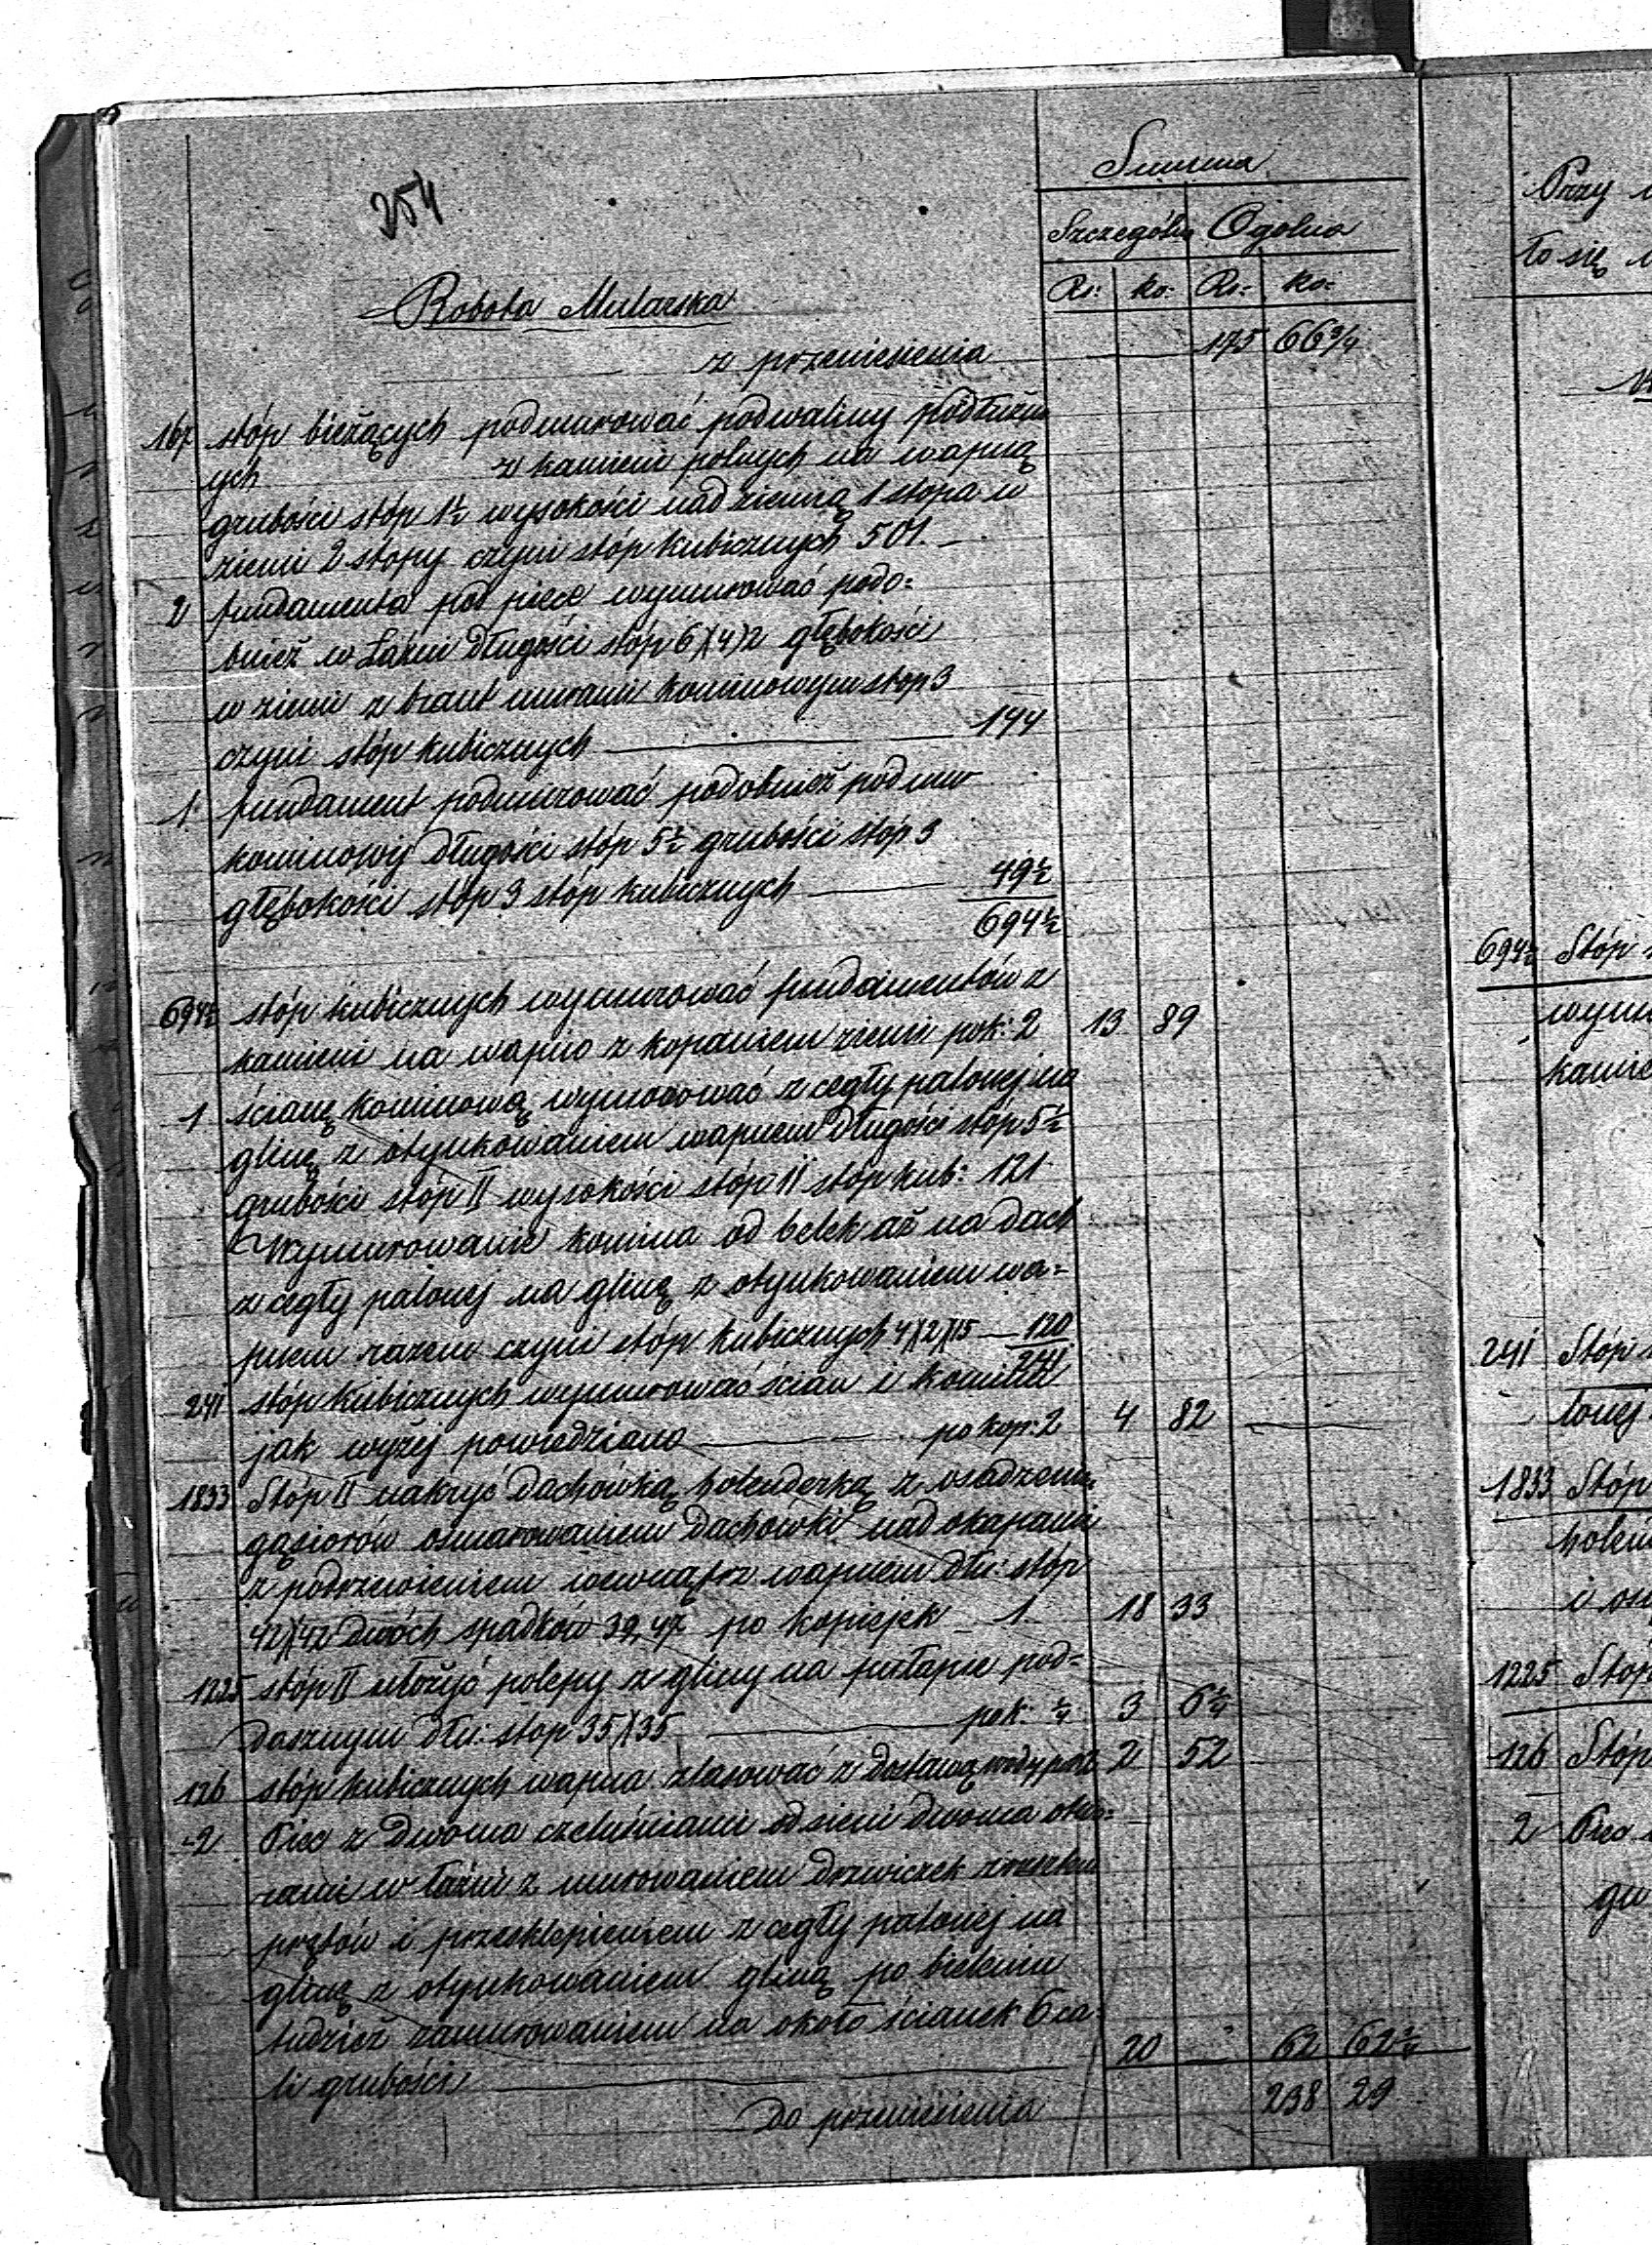 254
Summa
Szczególna Ogolna
Rs: ko: Rs: ko:
Robota Mularska
z przeniesienia 175 66 3/4
167 stóp bieżących podmurować podwaliny podłużn
ych z kamieni polnych na wapną
grubości stóp 1½ wysokości nad ziemią 1 stopa w
ziemi 2 stopy czyni stóp kubicznych 501.
2 fundamenta pod piece wymurować podo=
bnież w Łaźni długości stóp 6)(4)(2 głębokości
w ziemi z murami kominowym stop 3
czyni stóp kubicznych 144
1 fundament podmurować podobnież pod mur
kominowy długości stóp 5½ grubości stóp 3
głębokości stóp 3 stóp kubicznych 49½
694½
694½ stóp kubicznych wymurować fundamentów z
kamieni na wapno z kopaniem ziemi po k: 2 13 89
1 ścianę kominową wymurować z cegły palonej na
glinę z otynkowaniem wapnem długości stóp 5½
grubości stóp II wysokości stóp 11 stóp kub: 121
Wymurowanie komina od belek aż na dach
z cegły palonej na glinę z otynkowaniem wa=
pnem razem czyni stóp kubicznych 4)(2)(15 — 120
241
241 stóp kubicznych wymurować ścian i komina
jak wyżej powiedziano po kop: 2 4 82
1833 Stóp II nakryć dachówką holenderką z osadzeniem
gąsiorów osmarowaniem dachówki nad okapami
z podrzuceniem wewnątrz wapnem dłu: stóp
42)(42 dwóch spadków 39,47 po kopiejek 1 18 33
1225 stóp II ułożyć polepy z gliny na pułapie pod=
dasznym dłu: stop 35)(35 po k: ¼ 3 6¼
126 stóp kubicznych wapna zlasować z dostawą wody po k 2 2 52
2 Piec z dwoma czeluściami od sieni dwoma otwo=
rami w łaźni z murowaniem drzwiczek rusztem
prętów i przesklepieniem z cegły palonej na
glinę z otynkowaniem gliną po bieleniu
tudzież zamurowaniem na około ścianek 6 ca=
li grubości 20 — 62 62¼
Do przeniesienia 238 29
Przy
to się
694½ Stóp
241 Stóp
lonej
1833 Stóp
holen
1225 Stop
126 Stóp
2 Piec